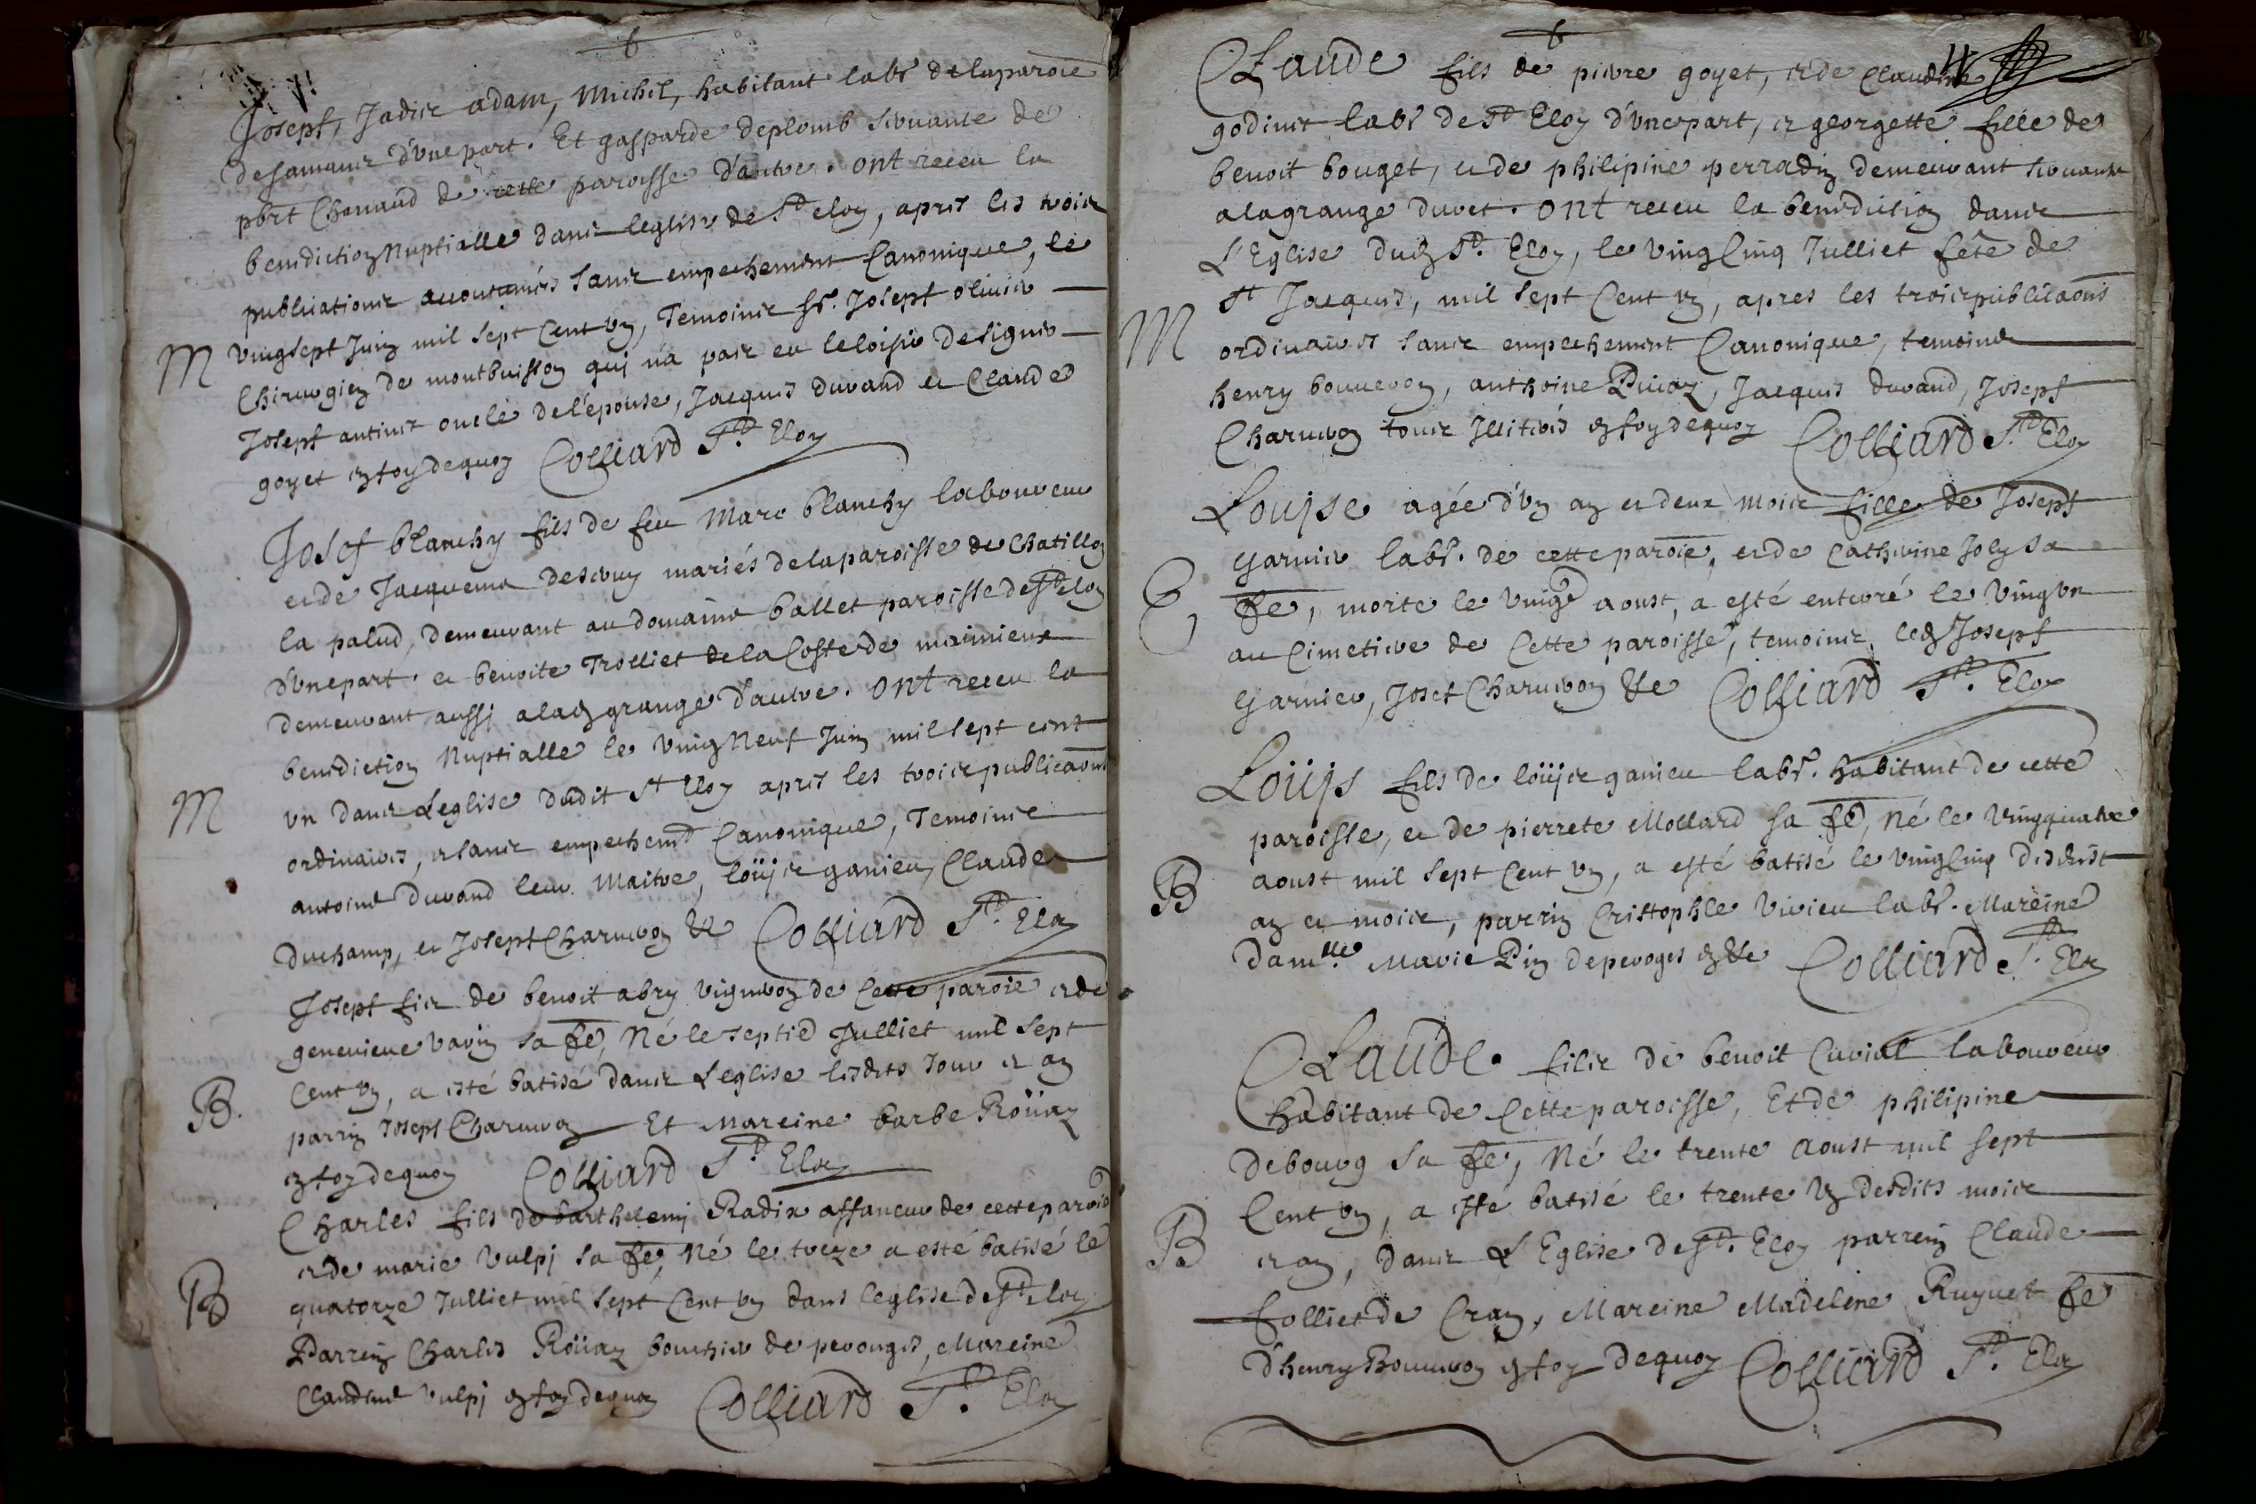 Joseph, Jadis adam, Michel, habitant labr delaparoie
desamans d'vne part. Et gasparde deplomb servante de
pbrt Chanaud de cette paroisse d'autre. ont receu la
benediction Nuptialle dans leglise de St eloy, apres les trois
publications accoutumées sans empechement Canonique, le
M
vingsept Juin mil sept Cent vn, Temoins Sr. Joseph olivier
Chirurgien de montbuisson qui n'a pas eu leloisir designer
Joseph antime oncle del'epouse, Jacques durand et Claude
goyet en foy dequoy Colliard St Eloy
Josef blanchy fils de feu Marc blanchy laboureur
et de Jacquema descuvy mariés delaparoisse de Chatillon
la palud, demeurant au domaine ballet paroisse de St eloy
d'vnepart. et benoite Trolliet dela Coste de maimieux
demeurent aussj alad grange d'autre. ont receu la
benediction Nuptialle le vingNeuf Juin mil sept cent
M
vn dans L'eglise dudit St Eloy apres les trois publicaons
ordinaires, et sans empechemt Canonique, Temoins
antoine Durand leur Maitre, loüys ganieu, Claude
duchamp, et Joseph Charveron &c Colliard St Eloy
Joseph fis de benoit abry vigneron de Cette paroie et de
genevieve varin sa fe, Né le septie Julliet mil sept
B.
Cent vn, a esté batisé dans L'eglise lesdits Jour et an
parrin Joseph Charveron Et Mareine barbe Roüay
en foy dequoy Colliard St Eloy
Charles fils de barthelemj Radix affaneur de cette paroie
et de marie vulpj sa fe, Né le treze a esté batisé le
B
quatorze Julliet mil sept Cent vn dans l'eglise de St eloy
Parrein Charles Roüay bouchier de perouges, Mareine
Claudine vulpj en foy dequoy Colliard St. Eloy
Claude fils de pierre goyet, et de Claudine
godinet labr de St Eloy d'vnepart, et georgette fille de
benoit bouget, et de philipine perradin demeurant servante
alagrange duvet. ont receu la benediction dans
L'Eglise dud St. Eloy, le vingCinq Julliet fête de
St Jacques, mil sept Cent vn, apres les trois publicaons
M
ordinaires sans empechement Canonique, temoins
henry bonneron, anthoine Puvaz, Jacques durand, Joseph
Charveron tous Jlliterés en foy dequoy Colliard St Eloy
Louise agée d'vn an et deux mois fille de Joseph
garnier labr. de cette paroie, et de Catherine Joly sa
fe, morte le vingt aoust, a esté enterré le vingvn
au Cimetiere de Cette paroisse, temoins led Joseph
garnier, Josef Charveron &c Colliard St. Eloy
Loüys fils de loüys ganieu labr. habitant de cette
paroisse, et de pierrete Mollard sa fe, Né le vingquatre
aoust mil sept Cent vn, a esté batisé le vingCinq desdits
B
an et mois, parrin Cristophle Vivieu labr. Mareine
damlle Marie Pin deperoges en &c Colliard St Eloy
Claude. filis de benoit Cuvial laboureur
habitant de Cette paroisse, Et de philipine
debourg sa fe, Né le trente aoust mil sept
Cent vn, a esté batisé le trente vn desdits mois
B
et an, dans L'Eglise de St. Eloy parrein Claude
folliet de Cran, Mareine Madeleine Ruguet fe
d'henry Bonneron en foy dequoy Colliard St. Eloy